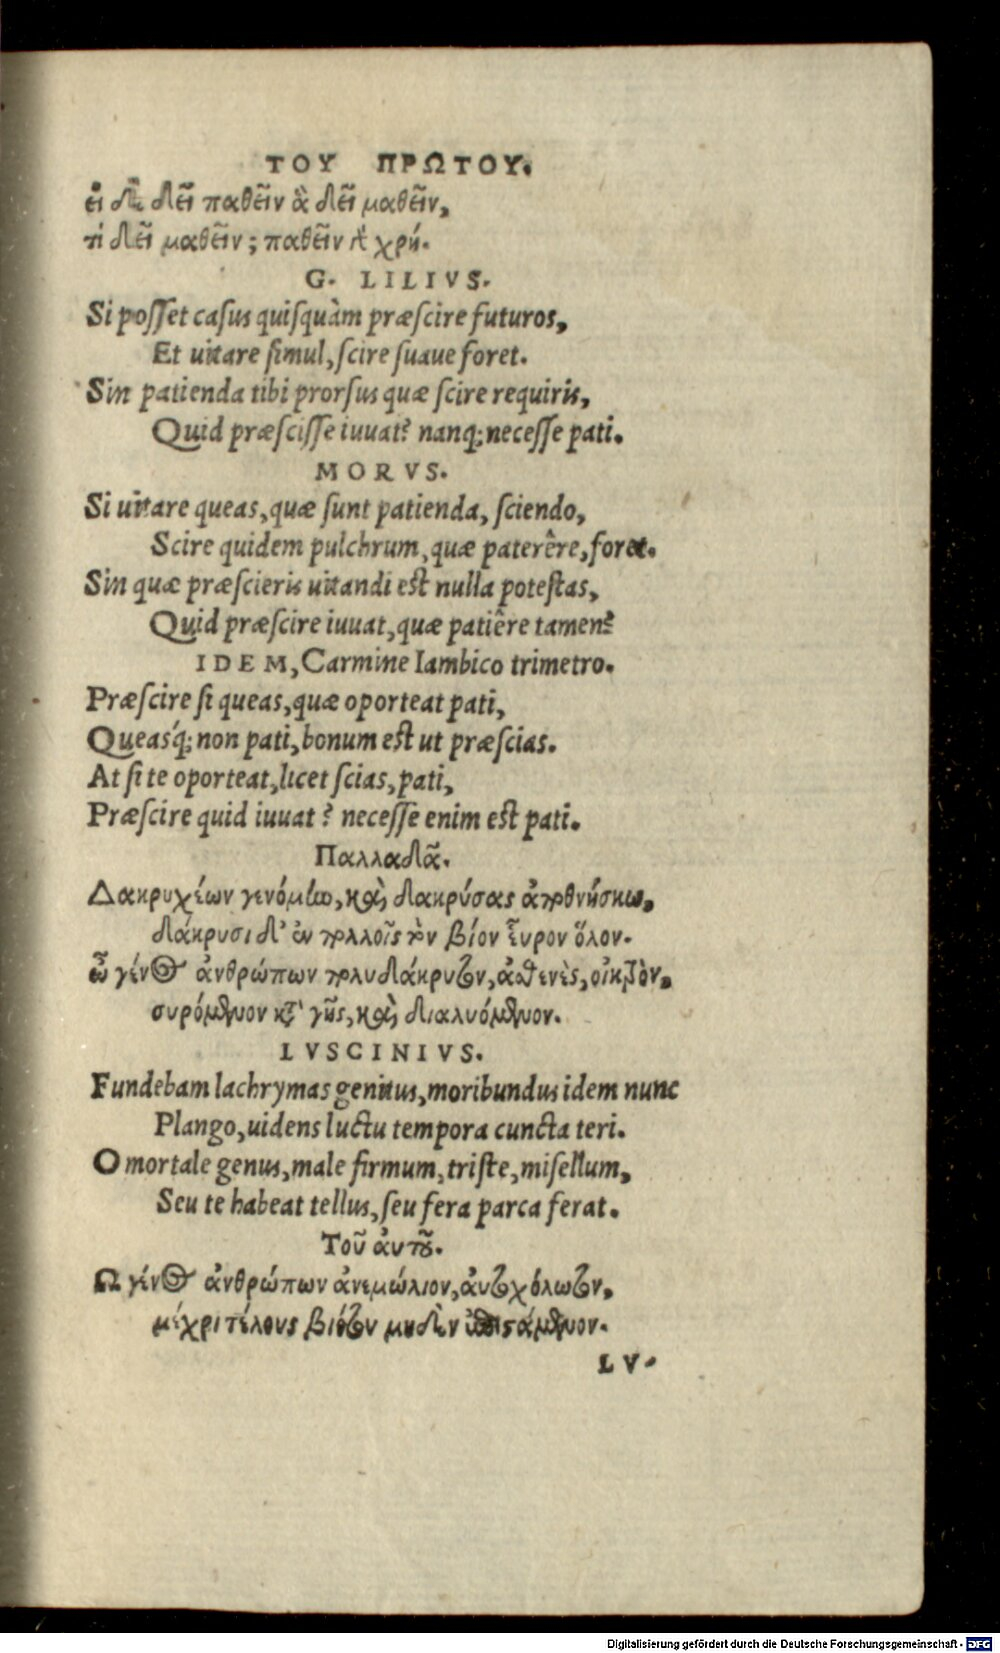 ΤΟΥ ΠΡΩΤΟΥ.
εἰ δὲ δεῖ παθεῖν ἃ δεῖ μαθεῖν,
τί δεῖ μαθεῖν; παθεῖν γὰρ χρή.
G. LILIVS.
Si poſſet caſus quiſquàm præſcire futuros,
Et uitare ſimul, ſcire ſuaue foret.
Sin patienda tibi prorſus quæ ſcire requiris,
Quid præſciſſe iuuat? nanq; neceſſe pati.
MORVS.
Si uitare queas, quæ ſunt patienda, ſciendo,
Scire quidem pulchrum, quæ paterêre, foret.
Sin quæ præſcieris uitandi eſt nulla poteſtas,
Quid præſcire iuuat, quæ patiêre tamen?
IDEM, Carmine Iambico trimetro.
Præſcire ſi queas, quæ oporteat pati,
Queasq́; non pati, bonum eſt ut præſcias.
At ſi te oporteat, licet ſcias, pati,
Præſcire quid iuuat? neceſſe enim eſt pati.
Παλλαδᾶ.
Δακρυχέων γενόμην, καὶ δακρύσας ἀποθνήσκω,
δάκρυσι δ' ἐν πολλοῖς τὸν βίον εὗρον ὅλον.
ὦ γένος ἀνθρώπων πολυδάκρυτον, ἀσθενὲς, οἰκτρὸν,
συρόμενον κατὰ γῆς, καὶ διαλυόμενον.
LVSCINIVS.
Fundebam lachrymas genitus, moribundus idem nunc
Plango, uidens luctu tempora cuncta teri.
O mortale genus, male firmum, triſte, miſellum,
Seu te habeat tellus, ſeu fera parca ferat.
Τοῦ ἀυτοῦ.
Ω γένος ἀνθρώπων ἀνεμώλιον, ἀυτοχόλωτον,
μέχρι τέλους βιότου μηδὲν ἐπιστάμενον.
LV-